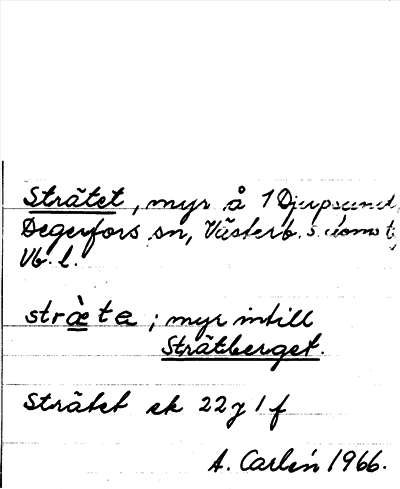 Strätet, myr å 1 Djupsund,
Degerfors sn, Västerb. s. doms t,
Vb. l.
stræ̀ta ; myr intill
Strätberget.
Strätet ek 22 y 1 f
A. Carlén 1966.